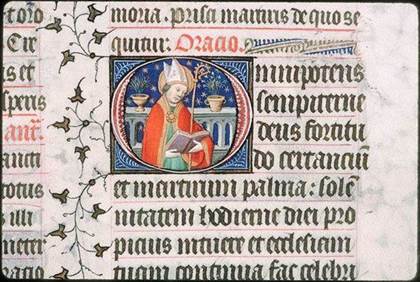 spens
ancti
totus
s illi
moria. Prisci martiris de quo se
quitur: Oracio.
Omnipotens
sempiterne
deus fortitu
do certanciũ
et martirum palma: solẽ
nitatem hodierne diei pro
picius intuere et ecclesiam
tuam continua fac celebri